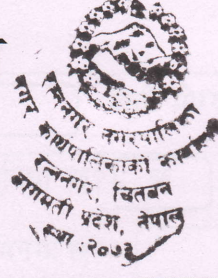 रत्ननगर नगरपालिका
नगर कार्यपालिकाको कार्यालय
रत्ननगर, चितवन
बागमती प्रदेश, नेपाल
स्था :२०७३